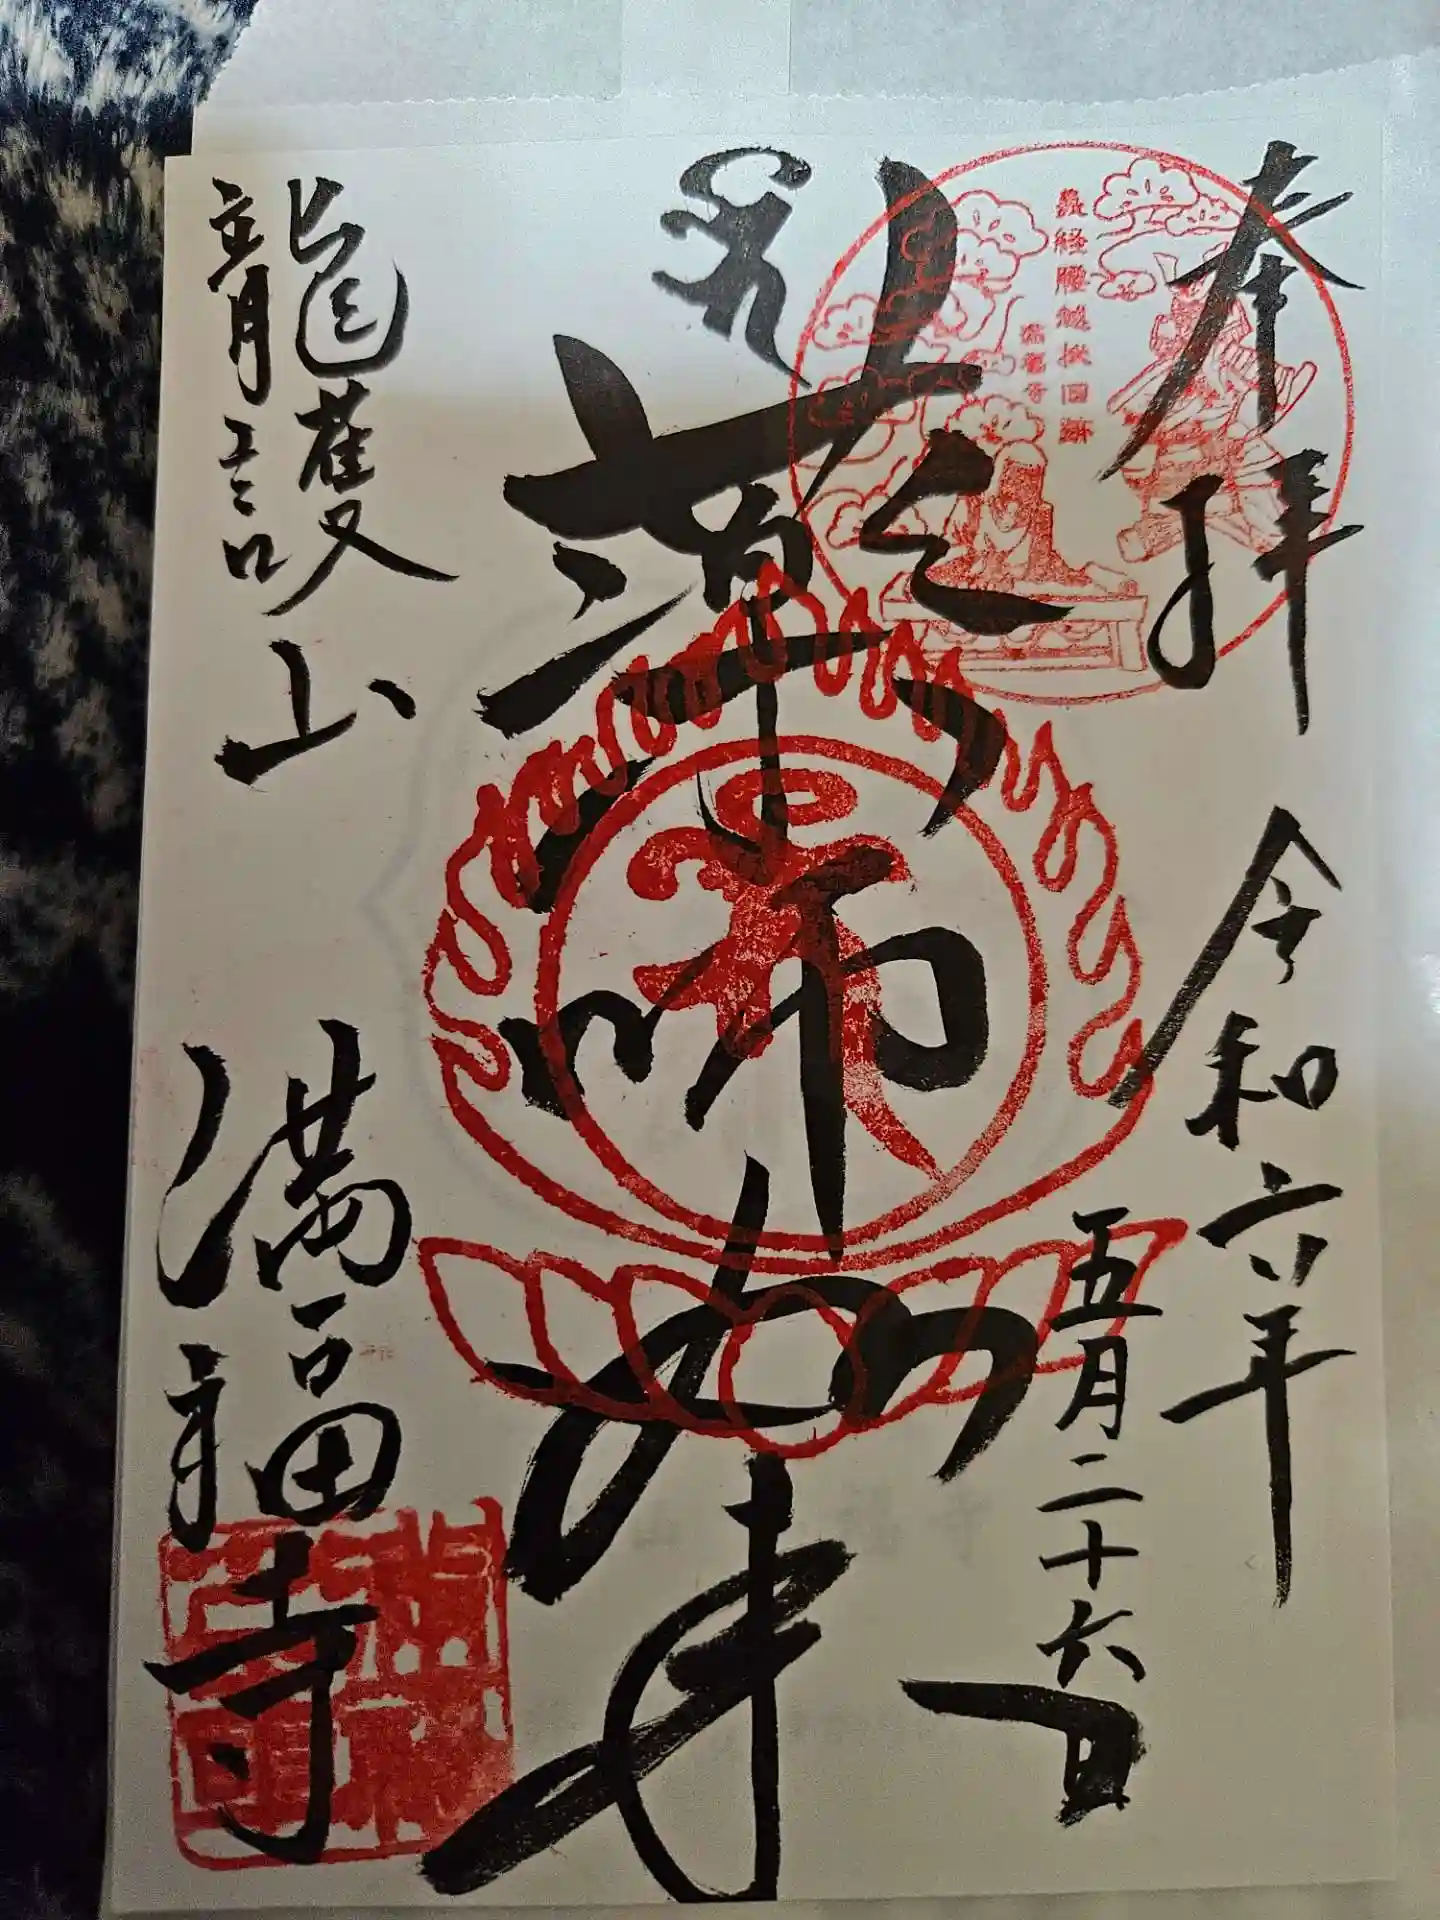 奉拝
令和六年
五月二十六日
義経腰越状旧跡
満福寺
薬師如来
龍護山
満福寺